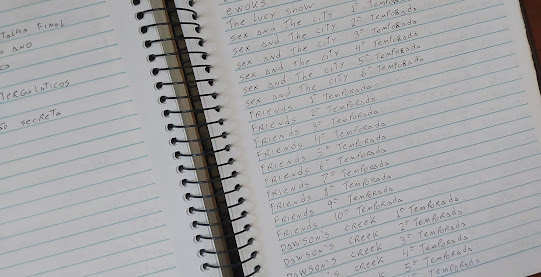 Talha Final
ANO
mergoláticos
secreta
ENOUS
The Lucy Show
Sex And The City 1ª Temporada
Sex And The City 2ª Temporada
Sex And The City 3ª Temporada
Sex And The City 4ª Temporada
Sex And The City 5ª Temporada
Sex And The City 6ª Temporada
Friends 1ª Temporada
Friends 2ª Temporada
Friends 3ª Temporada
Friends 4ª Temporada
Friends 5ª Temporada
Friends 6ª Temporada
Friends 7ª Temporada
Friends 8ª Temporada
Friends 9ª Temporada
Friends 10ª Temporada
Dawson's Creek 1ª Temporada
Dawson's Creek 2ª Temporada
Dawson's Creek 3ª Temporada
Dawson's Creek 4ª Temporada
Creek 5ª Temporada